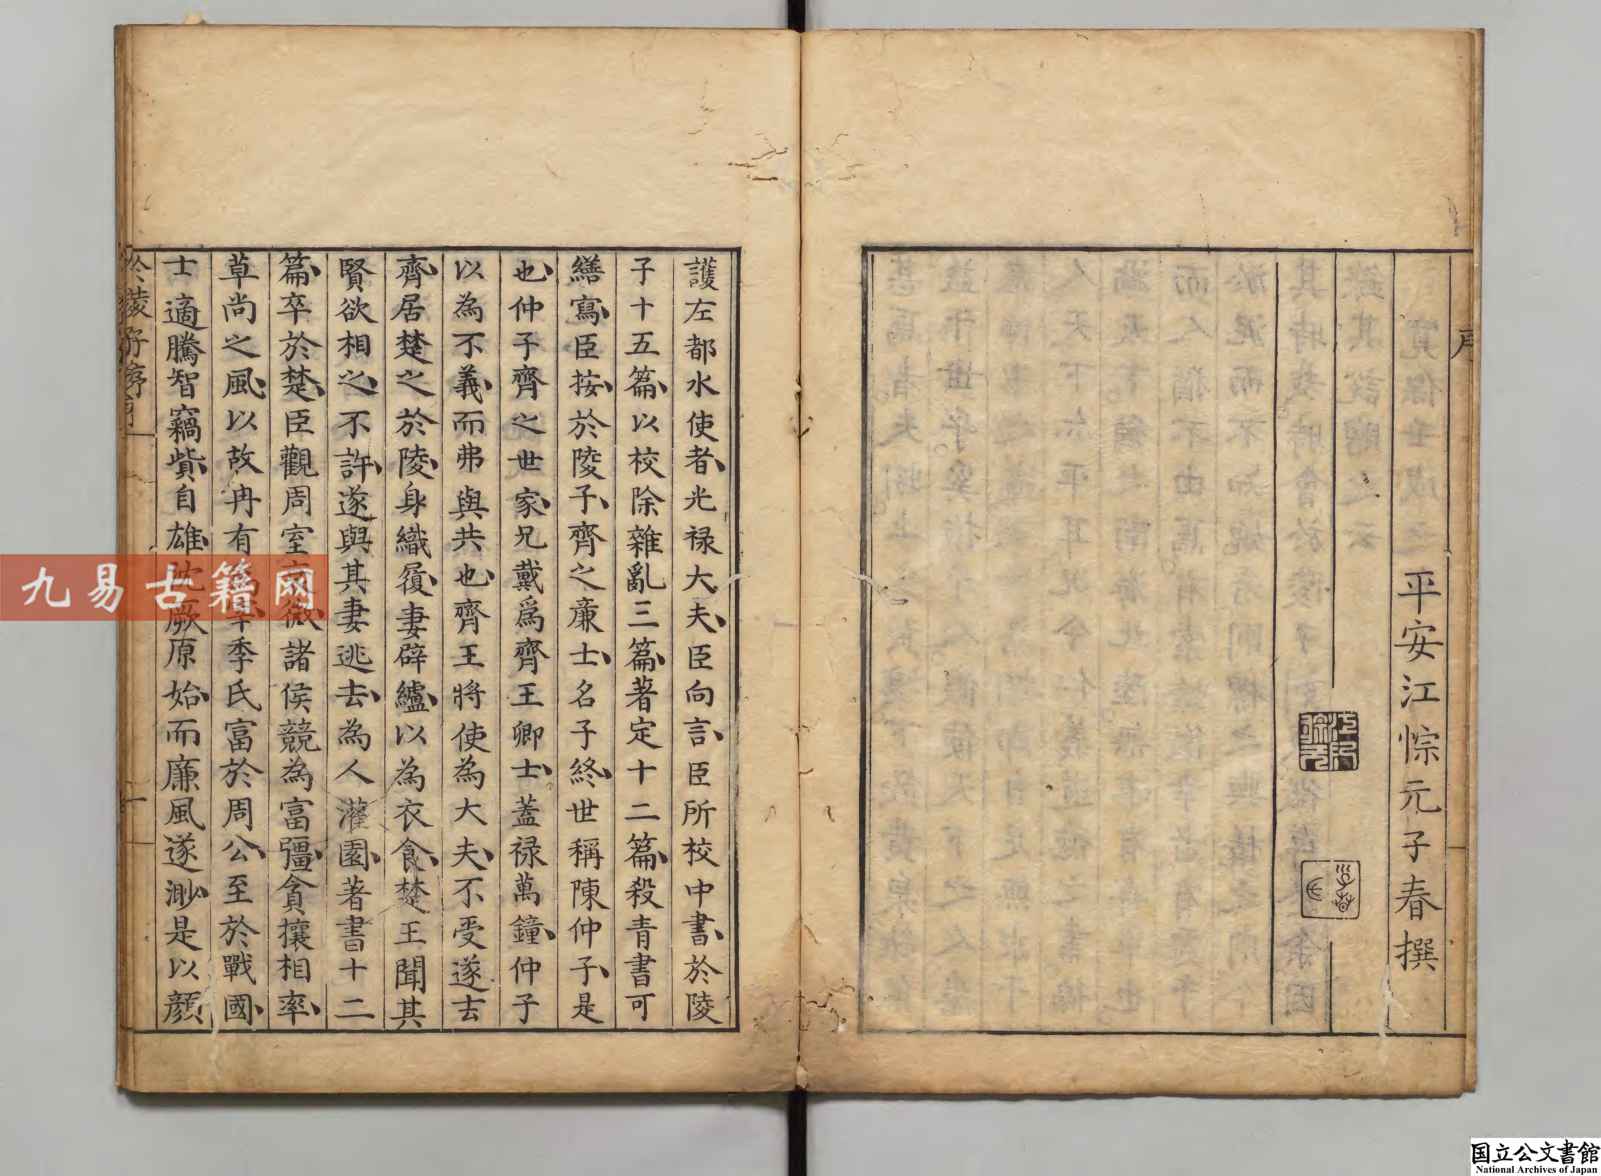 序
平安江悰元子春撰
護左都水使者光禄大夫臣向言臣所校中書於陵
子十五篇以校除雜亂三篇著定十二篇殺青書可
繕寫臣按於陵子齊之廉士名子終世稱陳仲子是
也仲子齊之世家兄戴爲齊王卿士蓋禄萬鐘仲子
以為不義而弗與共也齊王將使為大夫不受遂去
齊居楚之於陵身織履妻辟纑以為衣食楚王聞其
賢欲相之不許遂與其妻逃去為人灌園著書十二
篇卒於楚臣觀周室衰微諸侯競為富彊貪攘相率
草尚之風以故冉有為宰季氏富於周公至於戰國
士適騰智竊貲自雄沈厥原始而廉風遂渺是以顔
於陵子序
一
九易古籍网
国立公文書館
National Archives of Japan